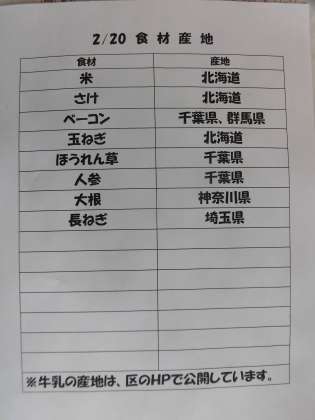 2/20 食材産地
食材 産地
米 北海道
さけ 北海道
ベーコン 千葉県、群馬県
玉ねぎ 北海道
ほうれん草 千葉県
人参 千葉県
大根 神奈川県
長ねぎ 埼玉県
※牛乳の産地は、区のHPで公開しています。